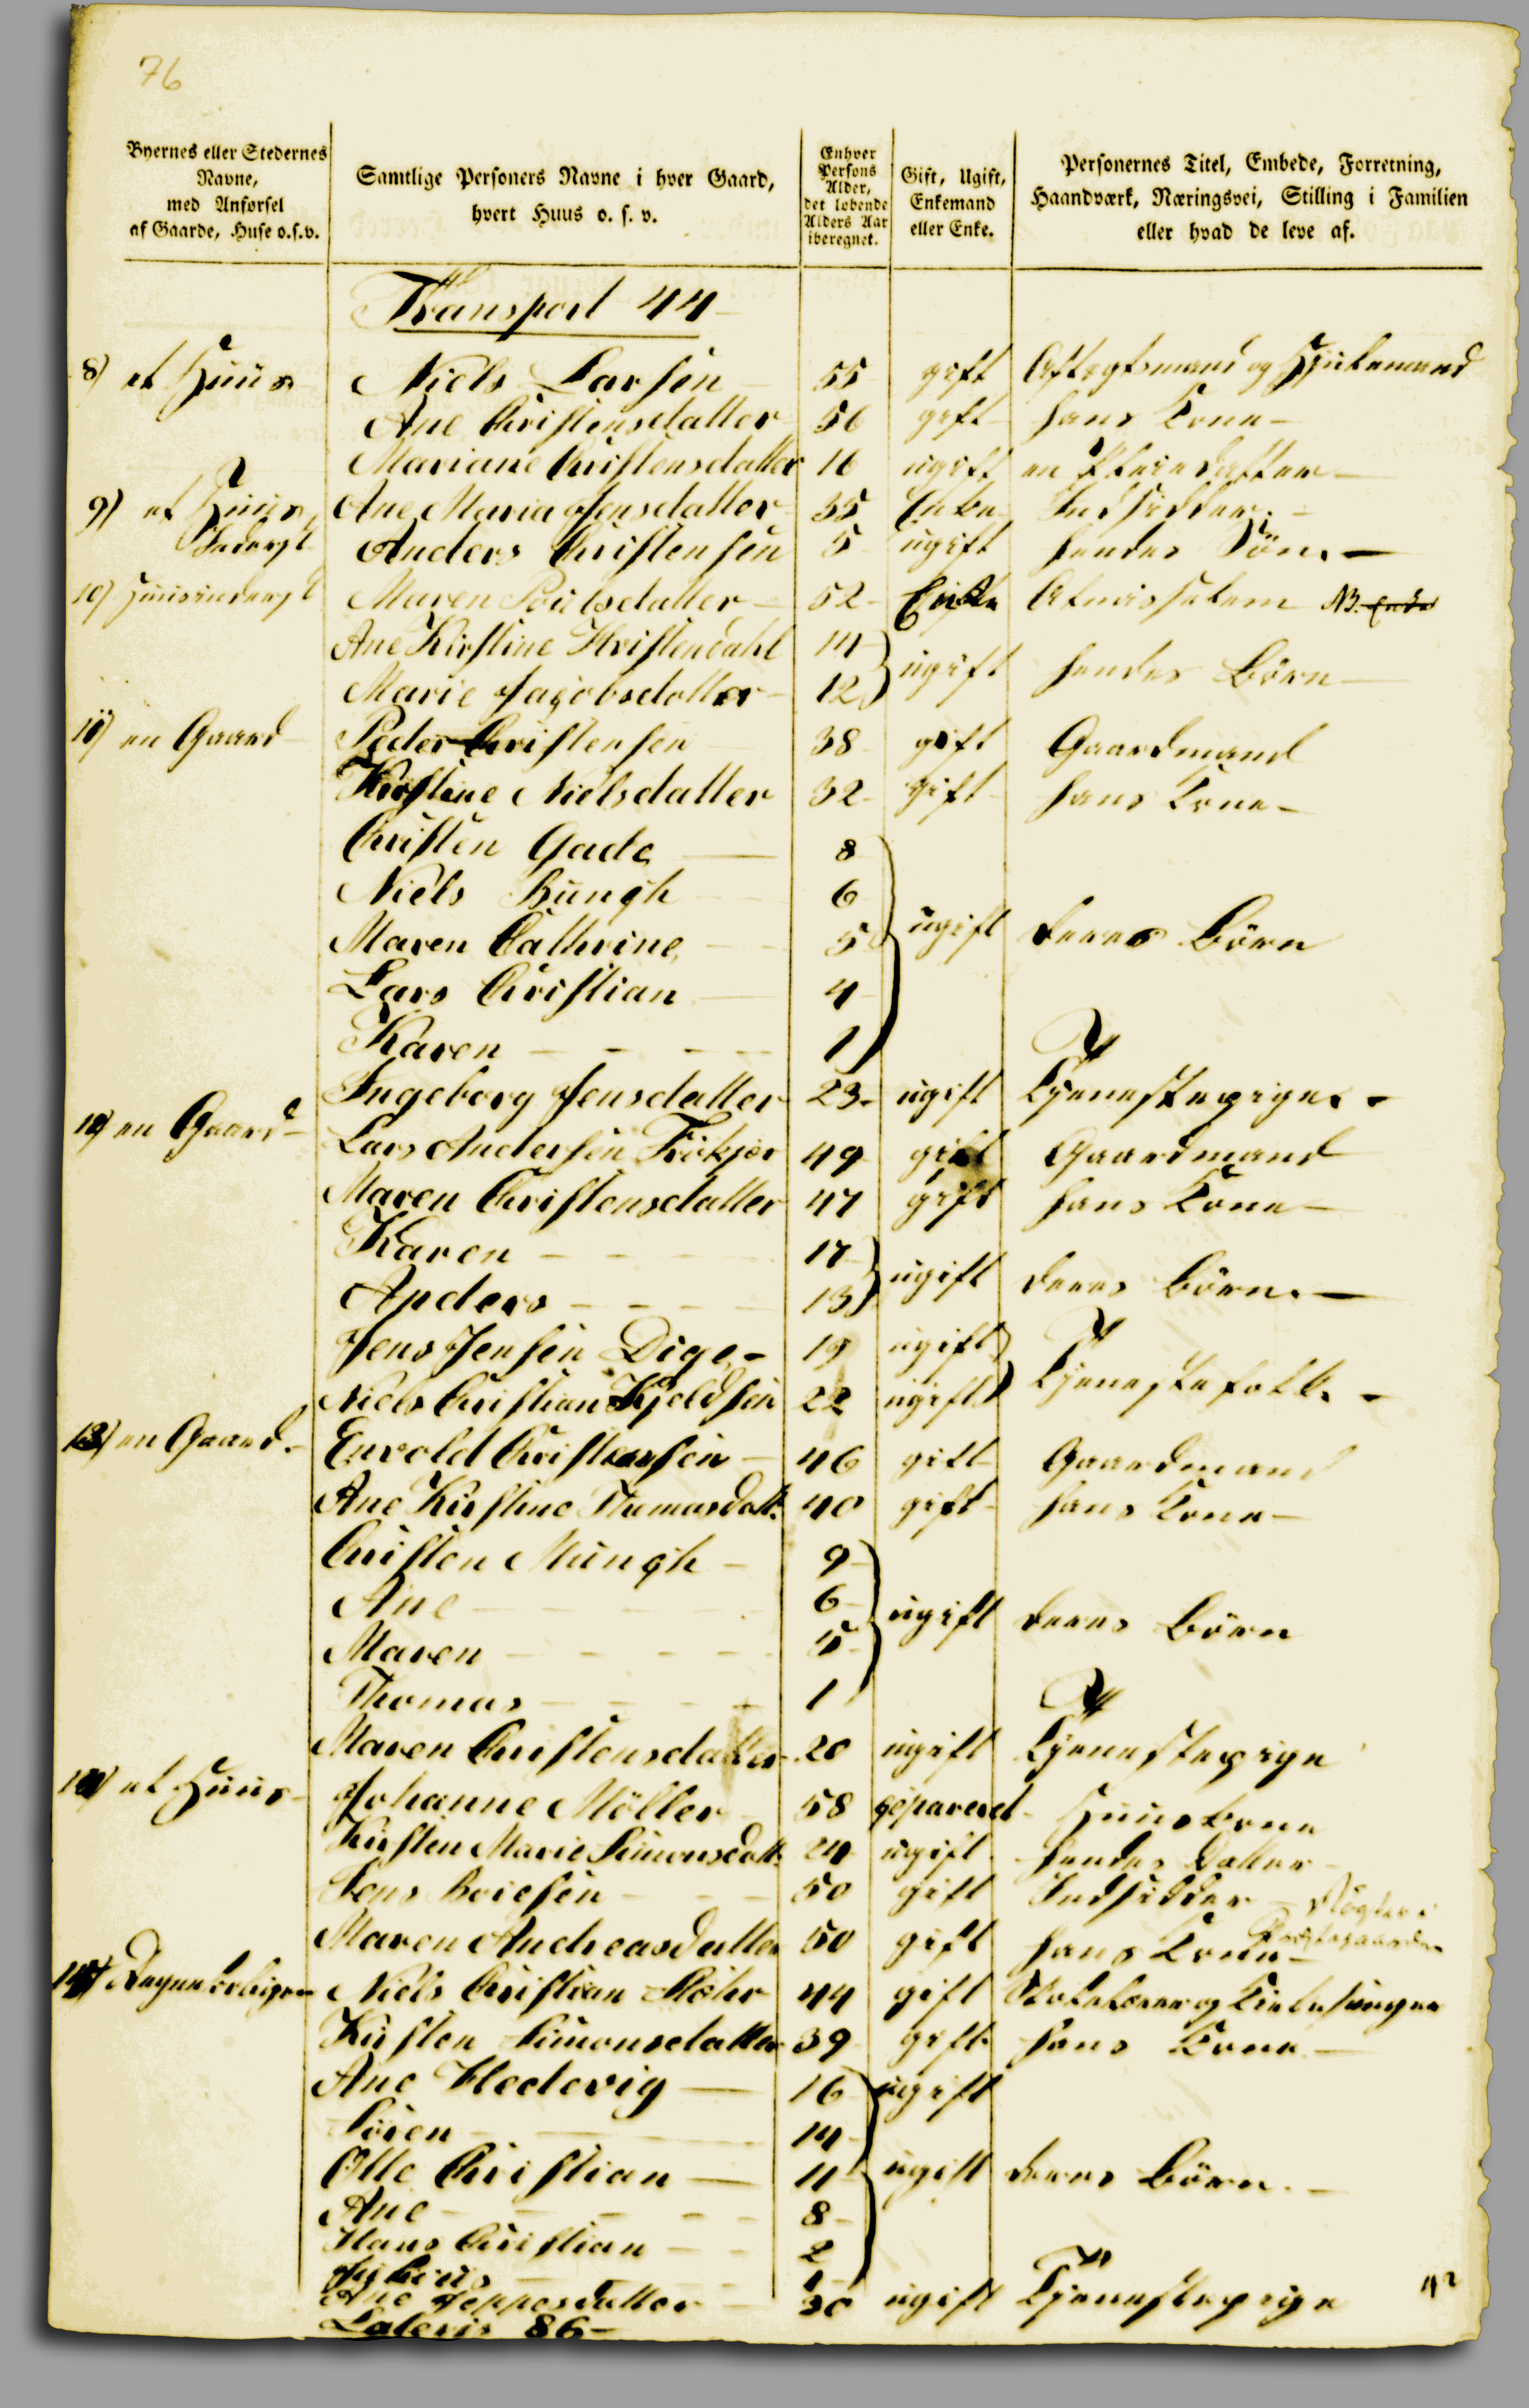 76
Byernes eller Stedernes Navne, med Anførsel af Gaarde, Huse o.s.v.
Samtlige Personers Navne i hver Gaard, hvert Huus o. s. v.
Enhver Persons Alder, det løbende Alders Aar iberegnet.
Gift, Ugift, Enkemand eller Enke.
Personernes Titel, Embede, Forretning, Haandværk, Næringsvei, Stilling i Familien eller hvad de leve af.
Transport 44
8) et Huus Niels Larsen 55 gift Aftægtsmand og Hjulemand
Ane Christensdatter 56 gift hans Kone
Mariane Christensdatter 16 ugift en Pleiedatter
9) et Huus, Ane Maria Jensdatter 35 Enke Indsidder
Inderst Anders Christensen 5 ugift hendes Søn.
10) Huusinderst Maren Poulsdatter 52 Enke Almisselem NB. Enke
Ane Kirstine Christendahl 14
Marie Jacobsdatter 12 ugift hendes Børn
11) en Gaard Peder Christensen 38 gift Gaardmand
Kirstine Nielsdatter 32 gift hans Kone
Christen Gade 8
Niels Bungh 6
Maren Cathrine 5 ugift deres Børn
Lars Christian 4
Karen 1
Ingeborg Jensdatter 23 ugift Tjenestepige
12) en Gaard Lars Andersen Trökjær 49 gift Gaardmand
Maren Christensdatter 47 gift hans Kone
Karen 17
Anders 13 ugift deres Børn.
Jens Jensen Dige 19 ugift
Niels Christian Kjeldsen 22 ugift Tjenestefolk.
13) en Gaard. Envold Christensen 46 gift Gaardmand
Ane Kirstine Thomasdatt. 40 gift hans Kone
Christen Mungh 9
Ane 6 ugift deres Børn
Maren 5
Thomas 1
Maren Christensdatter 20 ugift Tjenestepige
14) et Huus Johanne Möller 58 separeret Huuskone
Kirsten Marie Simonsdatt. 24 ugift hendes Datter
Jens Boiesen 50 gift Indsidder Røgter i
Maren Andreasdatter 50 gift hans Kone Præstegaarden
Degneboligen Niels Christian Möhr 44 gift Skolelærer og Kirkesanger
Kirsten Simonsdatter 39 gift hans Kone
Ane Hedevig 16 ugift
Sören 14
Otto Christian 11 ugift deres Børn.
Ane 8
Hans Christian 2
1
Ane Jeppesdatter 30 ugift Tjenestepige 42
Lateris 86